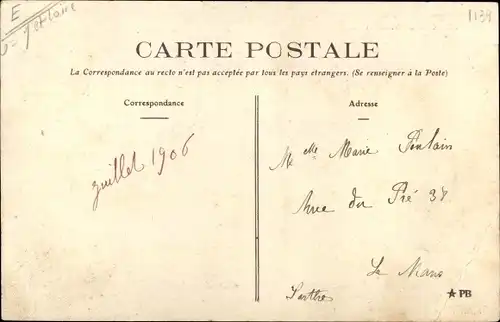 E
1139
CARTE POSTALE
La Correspondance au recto n'est pas acceptée par tous les pays étrangers. (Se renseigner à la Poste)
Correspondance
Adresse
juillet 1906
Melle Marie Poulain
Rue du Pré 37
Le Mans
Sarthe
★ PB